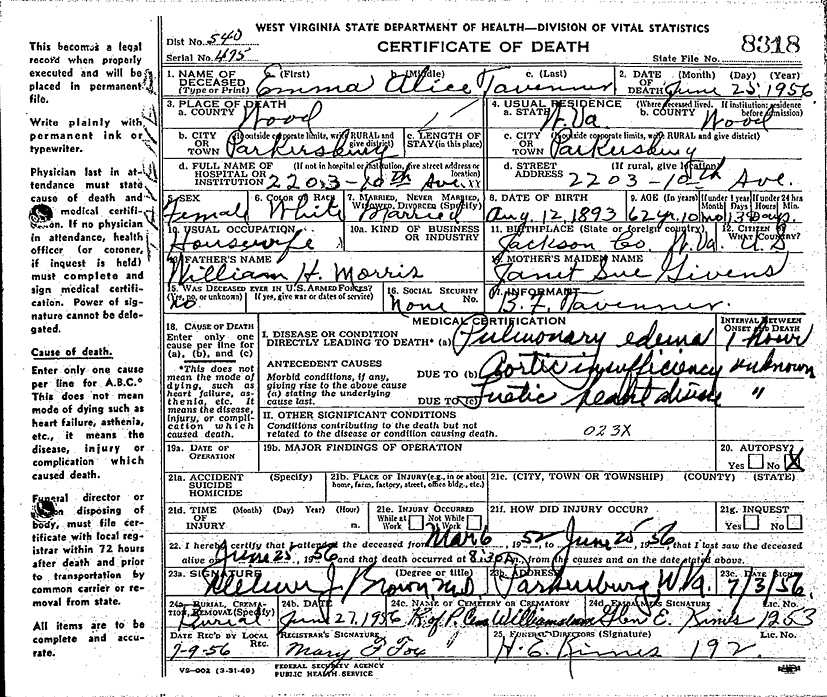 WEST VIRGINIA STATE DEPARTMENT OF HEALTH—DIVISION OF VITAL STATISTICS
Dist No. 540
Serial No. 475
CERTIFICATE OF DEATH
State File No. 8318
This becomes a legal record when properly executed and will be placed in permanent file.
Write plainly with permanent ink or typewriter.
Physician last in attendance must state cause of death and medical certification. If no physician in attendance, health officer (or coroner, if inquest is held) must complete and sign medical certification. Power of signature cannot be delegated.
Cause of death.
Enter only one cause per line for A.B.C.° This does not mean mode of dying such as heart failure, asthenia, etc., it means the disease, injury or complication which caused death.
Funeral director or disposing of body, must file certificate with local registrar within 72 hours after death and prior to transportation by common carrier or removal from state.
All items are to be complete and accurate.
1. NAME OF DECEASED (Type or Print) a. (First) Emma b. (Middle) Alice c. (Last) Tavenner
2. DATE OF DEATH (Month) (Day) (Year) June 25, 1956
3. PLACE OF DEATH
a. COUNTY Wood
4. USUAL RESIDENCE (Where deceased lived. If institution: residence before admission)
a. STATE W. Va. b. COUNTY Wood
b. CITY OR TOWN (If outside corporate limits, write RURAL and give district) Parkersburg
c. LENGTH OF STAY (in this place)
c. CITY OR TOWN (If outside corporate limits, write RURAL and give district) Parkersburg
d. FULL NAME OF HOSPITAL OR INSTITUTION (If not in hospital or institution, give street address or location) 2203-10th Ave. XX
d. STREET ADDRESS (If rural, give location) 2203-10th Ave.
5. SEX Female
6. COLOR OR RACE White
7. MARRIED, NEVER MARRIED, WIDOWED, DIVORCED (Specify) Married
8. DATE OF BIRTH Aug. 12, 1893
9. AGE (In years) If under 1 year Months Days If under 24 hrs Hours Min. 62 yr. 10 mo. 13 Days.
10. USUAL OCCUPATION Housewife
10a. KIND OF BUSINESS OR INDUSTRY
11. BIRTHPLACE (State or foreign country) Jackson Co. W. Va.
12. CITIZEN OF WHAT COUNTRY? U.S
13. FATHER'S NAME William H. Morris
14. MOTHER'S MAIDEN NAME Janet Sue Givens
15. WAS DECEASED EVER IN U.S. ARMED FORCES? (Yes, no, or unknown) (If yes, give war or dates of service) no
16. SOCIAL SECURITY No. None
17. INFORMANT B. F. Tavenner.
MEDICAL CERTIFICATION
INTERVAL BETWEEN ONSET AND DEATH
18. CAUSE OF DEATH Enter only one cause per line for (a), (b), and (c)
*This does not mean the mode of dying, such as heart failure, asthenia, etc. It means the disease, injury, or complication which caused death.
I. DISEASE OR CONDITION DIRECTLY LEADING TO DEATH* (a) Pulmonary edema 1 hour
ANTECEDENT CAUSES
Morbid conditions, if any, giving rise to the above cause (a) stating the underlying cause last.
DUE TO (b) Aortic insufficiency unknown
DUE TO (c) Luetic heart disease "
II. OTHER SIGNIFICANT CONDITIONS
Conditions contributing to the death but not related to the disease or condition causing death.
023X
19a. DATE OF OPERATION
19b. MAJOR FINDINGS OF OPERATION
20. AUTOPSY? Yes No X
21a. ACCIDENT SUICIDE HOMICIDE (Specify)
21b. PLACE OF INJURY (e.g., in or about home, farm, factory, street, office bldg., etc.)
21c. (CITY, TOWN OR TOWNSHIP) (COUNTY) (STATE)
21d. TIME OF INJURY (Month) (Day) (Year) (Hour) m.
21e. INJURY OCCURRED While at Work Not While at Work
21f. HOW DID INJURY OCCUR?
21g. INQUEST Yes No
22. I hereby certify that I attended the deceased from Mar 6, 1952, to June 25, 1956, that I last saw the deceased
alive on June 25, 1956 and that death occurred at 8:30 m., from the causes and on the date stated above.
23a. SIGNATURE (Degree or title) J. Brown M.D.
23b. ADDRESS Parkersburg W Va.
23c. DATE SIGNED 7/3/56
24a. BURIAL, CREMATION, REMOVAL (Specify) Burial
24b. DATE June 27, 1956
24c. NAME OF CEMETERY OR CREMATORY K. of P. Cem Williamstown
24d. EMBALMER'S SIGNATURE Glen E. Kimes Lic. No. 1253
DATE REC'D BY LOCAL REG. 7-9-56
REGISTRAR'S SIGNATURE Mary F. Fox "
25. FUNERAL DIRECTORS (Signature) H. E. Kimes Lic. No. 192.
VS-002 (3-31-49)
FEDERAL SECURITY AGENCY
PUBLIC HEALTH SERVICE